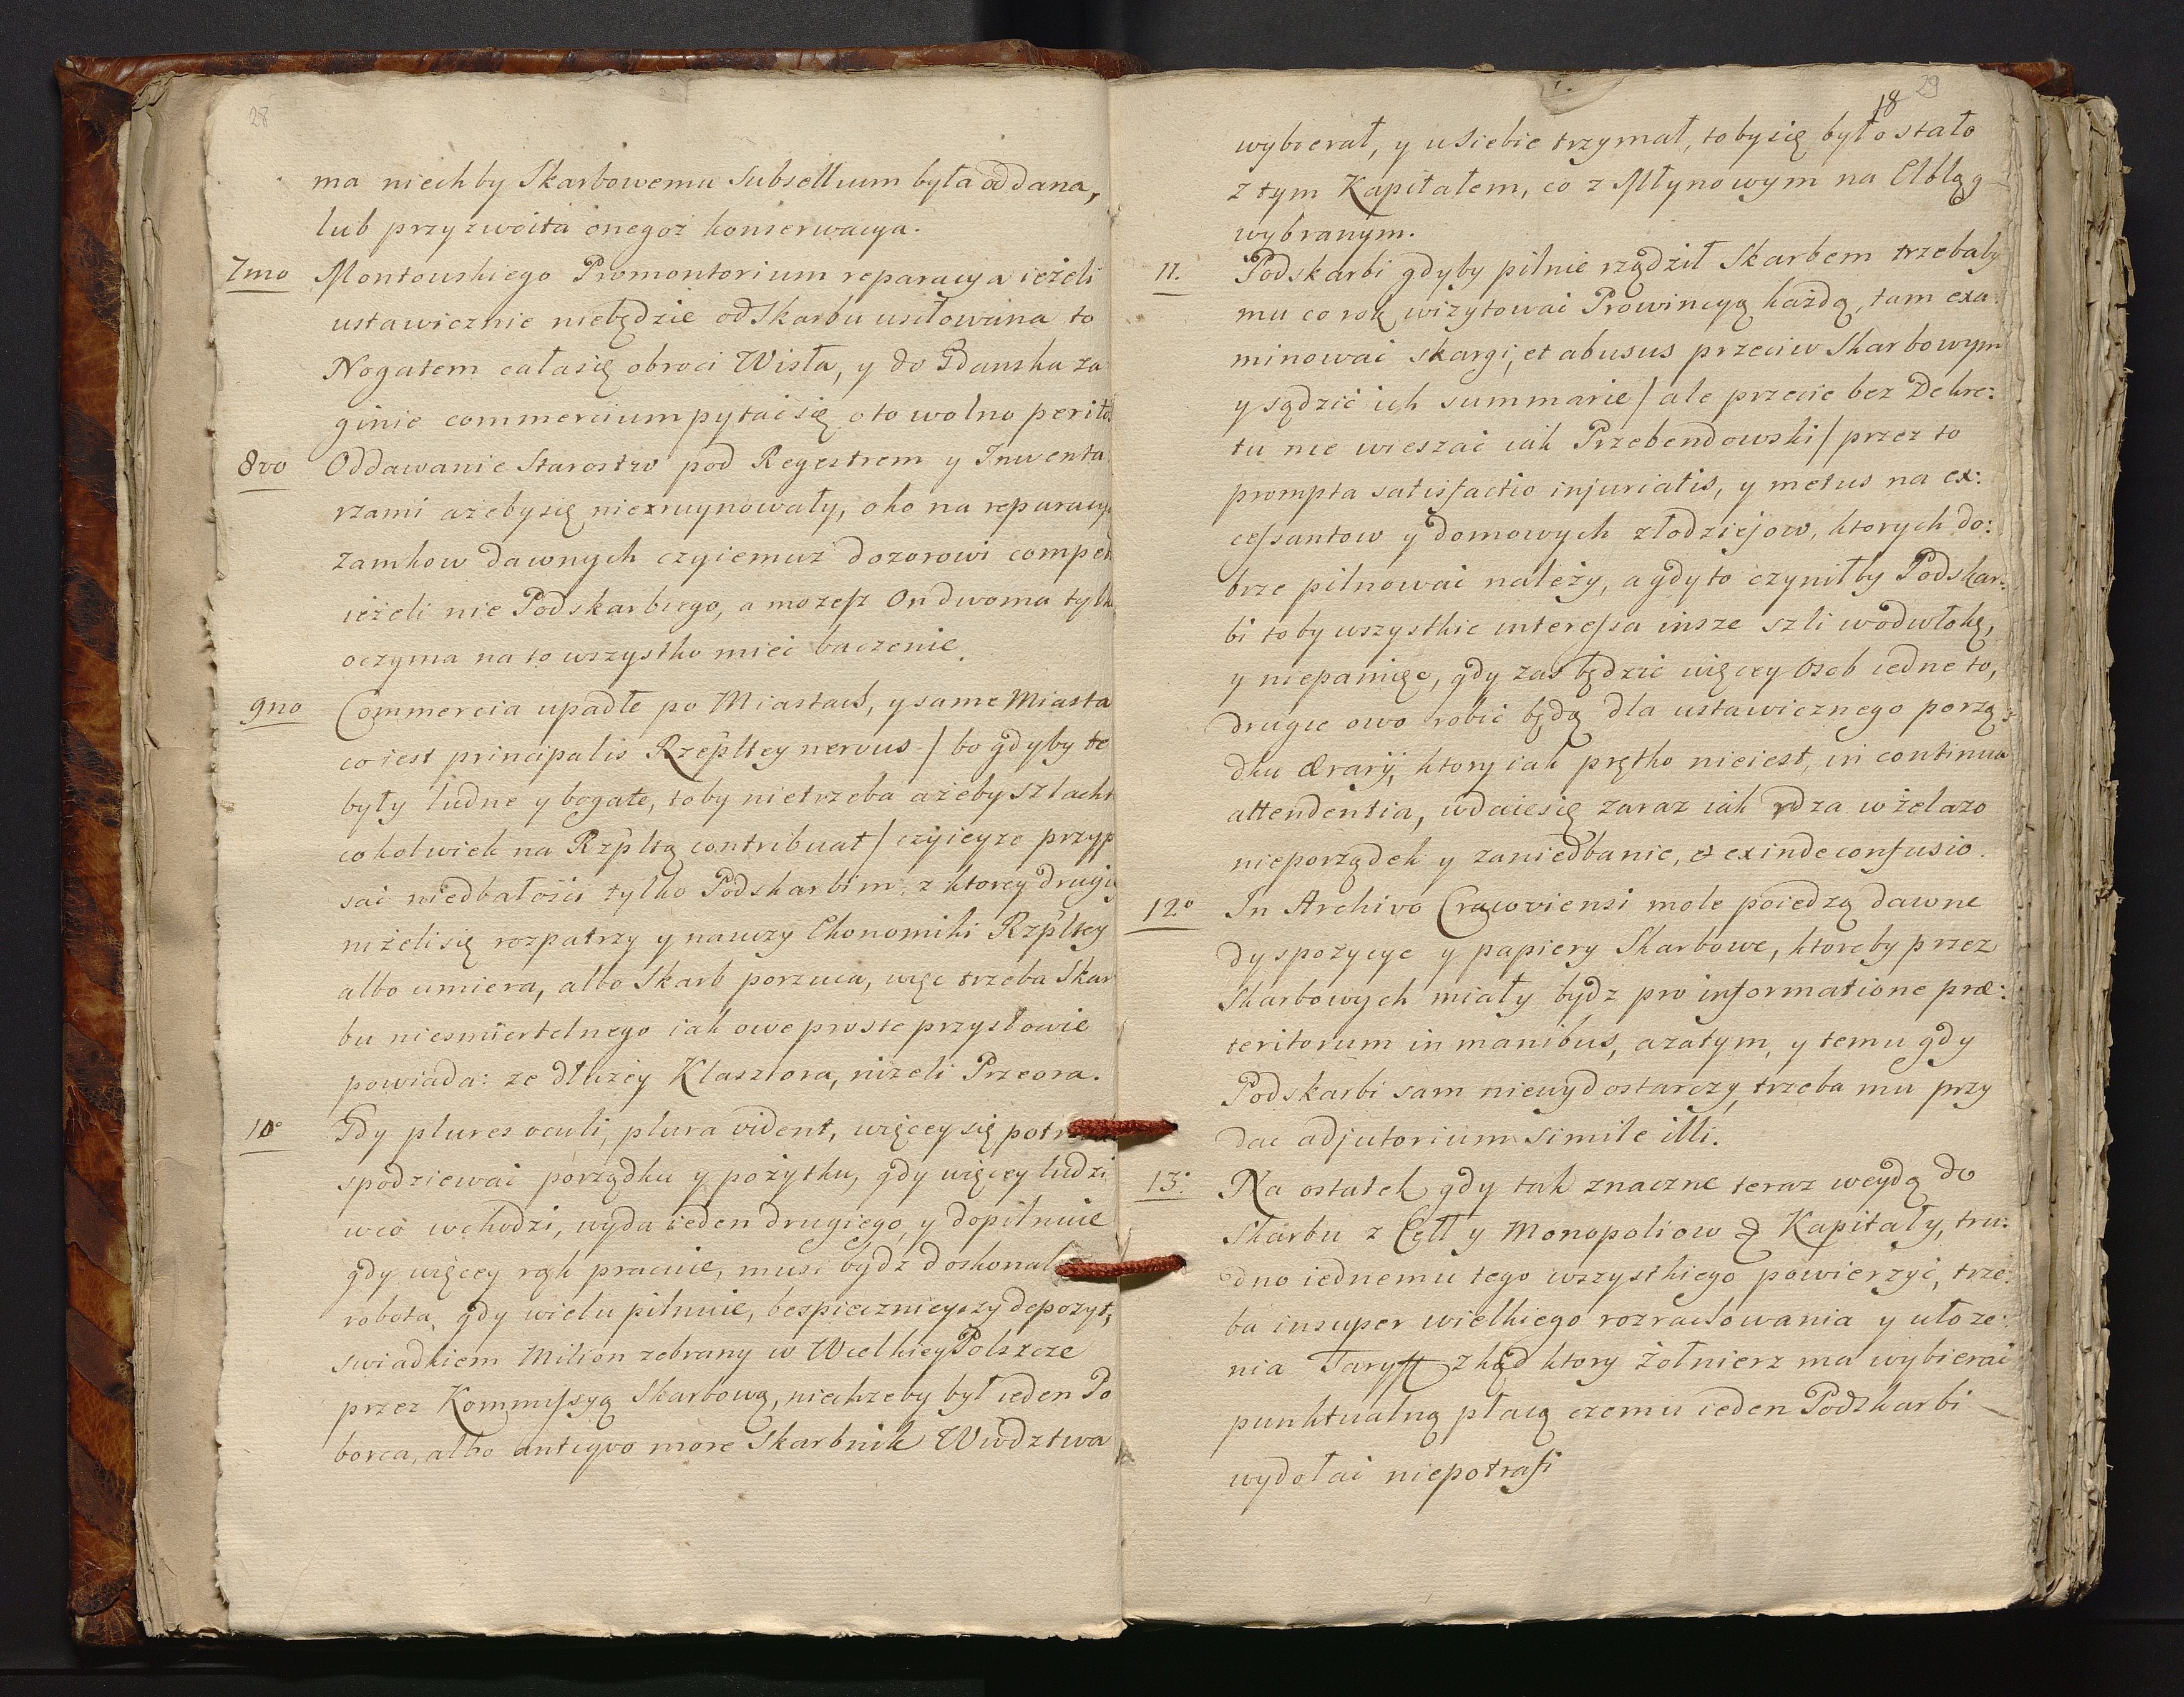 28
ma niechby Skarbowemu Subsellium była oddana,
lub przyzwoita onegoż konserwacya.
7mo Montouskiego Promontorium reparacya ieżeli
ustawicznie niebędzie od Skarbu usiłowana to
Nogatem całasię obroci Wisła, y do Gdanska za
ginie commercium pytaćsię o to wolno
8vo Oddawanie Starostw pod Regestrem y Inwenta
rzami ażebysię niezruynowały, oko na reparacy
Zamkow dawnych czyiemuż dozorowi
ieżeli nie Podskarbiego, a możesz On dwoma
oczyma na to wszystko mieć baczenie.
9no Commercia upadłe po Miastach, y same Miasta
co iest principalis Rzepltey nervus / bo gdyby te
były ludne y bogate, toby nietrzeba ażeby
cokolwiek na Rzpltą contribuat / czyieyże
sać niedbałości tylko Podskarbim, z ktorey
niżelisię rozpatrzy y nauczy Ekonomiki Rzpltey
albo umiera, albo Skarb porzuca, więc trzeba Skar
bu niesmiertelnego iak owe proste przysłowie
powiada: że dłużey Klasztora, niżeli Przeora.
10o Gdy plures oculi, plura vident, więcey się
spodziewać porządku y pożytku, gdy więcey ludzi
wco wchodzi, wyda ieden drugiego, y dopilnuie
gdy więcey rąk pracuie, musi bydź
robota, gdy wielu pilnuie, bespiecznieyszy depozyt,
swiadkiem Milion zebrany w Wielkiey Polszcze
przez Kommissyą Skarbową, niechżeby był ieden Po
borca, albo antiqvo more Skarbnik Wwdztwa
18 29
wybierał, y u Siebie trzymał, tobysię było stało
z tym Kapitałem, co z Młynowym na Elbląg
wybranym.
11. Podskarbi gdyby pilnie rządził Skarbem trzebaby
mu co rok wizytować Prowincyą każdą, tam exa:
minować skargi, et abusus przeciw Skarbowym
y sądzić ich summarie / ale przecie bez Dekre:
tu nie wieszać iak Przebendowski / przez to
prompta satisfactio injuriatis, y metus na ex:
cessantow y domowych złodziejow, ktorych do:
brze pilnować należy, a gdy to czyniłby Podskar:
bi toby wszystkie interessa insze szli wodwłokę,
y niepamięć, gdy zaś będzie więcey Osob iedne to,
drugie owo robić będą dla ustawicznego porzą:
dku ærarij, ktory iak prętko nieiest, in continua
attendentia, wdaiesię zaraz iak rdza w żelazo
nieporządek y zaniedbanie, et exinde confusio.
12o In Archivo Cracoviensi mole poiedzą dawne
dyspozycye y papiery Skarbowe, ktoreby przez
Skarbowych miały bydz pro informatione præ:
teritorum in manibus, azatym, y temu gdy
Podskarbi sam niewydostarczy, trzeba mu przy
dac adjutorium simile illi.
13o Na ostatek gdy tak znaczne teraz weydą do
Skarbu z Cełł y Monopoliow Kapitały, tru:
dno iednemu tego wszystkiego powierzyć, trze:
ba insuper wielkiego rozrachowania y ułoże:
nia Taryff zkąd ktory żołnierz ma wybierać
punktualną płacą czemu ieden Podskarbi
wydołać niepotrafi